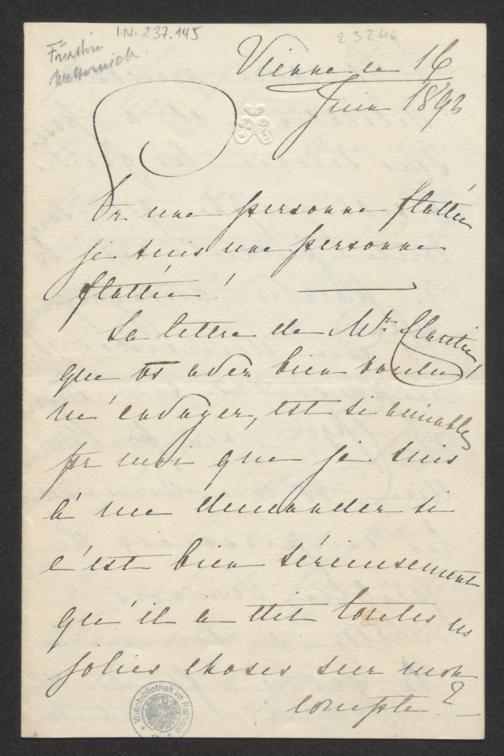 I.N. 237.145
23246
Fürstin
Metternich.
Vienne le 16
Juin 1892
Pr une personne flattée
je suis une personne
flattée!
La lettre de Mr. Claretie,
que vs avez bien voulu
m'envoyer, est si aimable
pr moi que je suis
à me demander si
c'est bien sérieusement
qu'il a dit toutes ces
jolies choses sur mon
compte?
Wienbibliothek im Rathaus